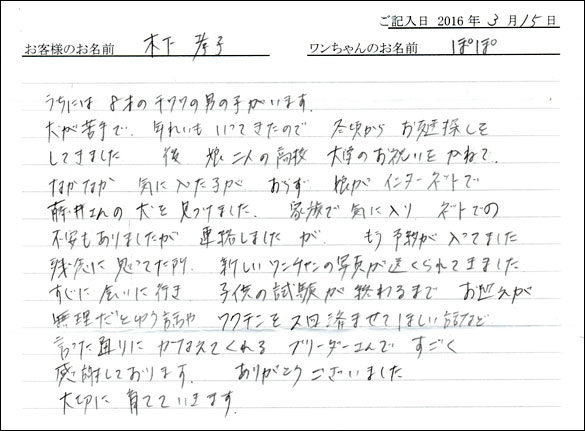 ご記入日 2016 年 3 月 15 日
お客様のお名前 木下 孝子 ワンちゃんのお名前 ぽぽ
うちには 8才のチワワの男の子がいます.
犬が苦手で. 年れいも いってきたので 冬頃から お友達探しを
してきました 後 娘二人の高校 大学のお祝いをかねて.
なかなか 気に入た子が おらず 娘が インターネットで
藤井さんの 犬を見つけました. 家族で気に入り ネットでの
不安もありましたが 連絡しました が. もう予約が入ってました
残念に思ってた所. 新しいワンチャンの写真が送くられてきました
すぐに会いに行き 子供の試験が終わるまで お世話が
無理だとゆう話や ワクチンを2回済ませてほしい話など
言った通りに かなえてくれる ブリーダーさんで すごく
感謝しております. ありがとうございました
大切に 育てていきます.